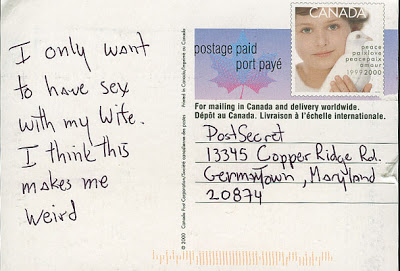 I only want
to have sex
with my wife.
I think this
makes me
weird
© 2000 Canada Post Corporation/Société canadienne des postes
Printed in Canada/Imprimé au Canada
postage paid
port payé
CANADA
peace
paixlove
peacepaix
amour
1999 2000
For mailing in Canada and delivery worldwide.
Dépôt au Canada. Livraison à l'échelle internationale.
PostSecret
13345 Copper Ridge Rd.
Germantown, Maryland
20874